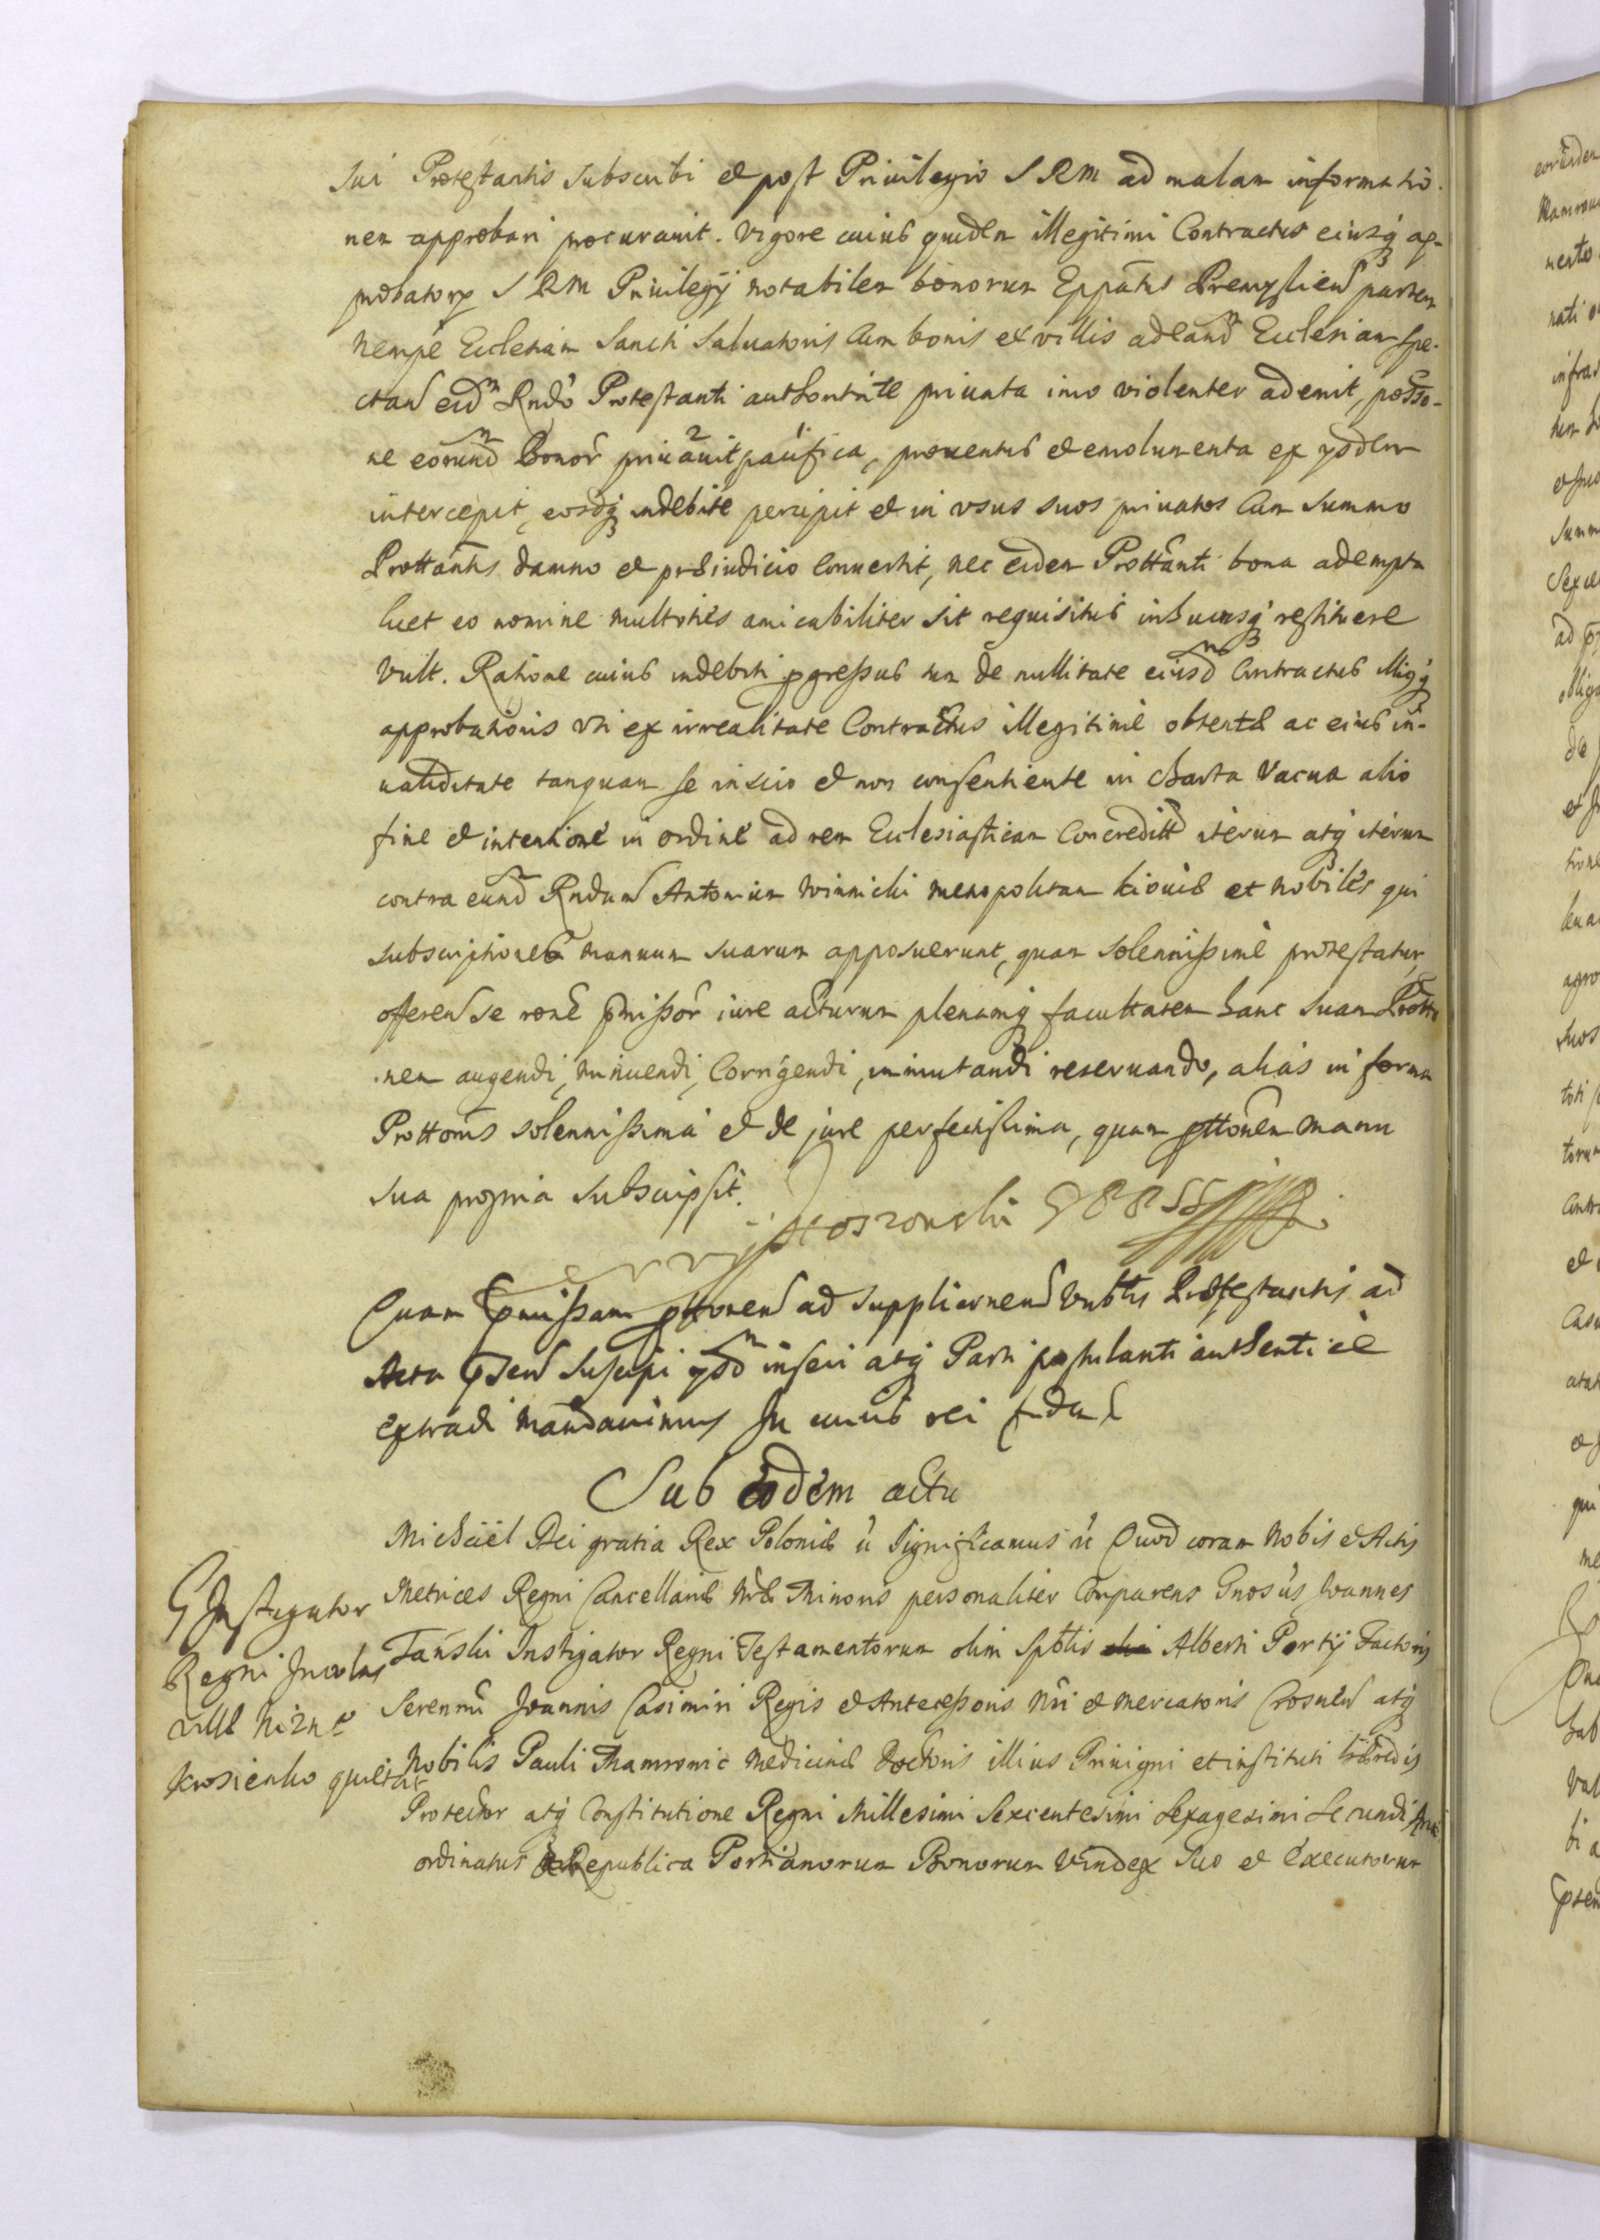 sui Protestantis subscribi et post Privilegio S R M ad malam informatio-
nem approbari procuravit. Vigore cuius quidem illegitimi Contractus eiusq ap-
probatorÿ S R M Privilegÿ notabilem bonorum Eppatus Premyslien partem
nempe Ecclesiam Sancti Salvatoris cum bonis et villis ad eand Ecclesiam spe-
ctan eid Rndo Protestanti authoritate privata imo violenter ademit, posso-
ne eorund Bonor privavit pacifica, proventus et emolumenta ex ÿsdem
intercepit, eosdq indebite percipit et in usus suos privatos cum summo
Prottantis damno et præiudicio convertit, nec eidem Prottanti bona adempta
licet eo nomine multoties amicabiliter sit requisitus inhucusq restituere
vult. Ratione cuius indebiti pgressus tum de nullitate eiusd Contractus illiusq
approbationis uti ex irrealitate Contractus illegitime obtentæ ac eius in-
validitate tanquam se inscio et non consentiente in charta vacua alio
fine et intentione in ordine ad rem Ecclesiasticam concredit iterum atq iterum
contra eund Rndum Antonium Winnicki Metropolitam Kioviæ et nobiles qui
subscriptiones manuum suarum apposuerunt, quam solennissime protestatur,
offeren se rone pmissor iure acturum plenamq facultatem hanc suam Protto-
nem augendi, minuendi, corrigendi, immutandi reservando, alias in forma
Prottonis solennissima et de jure perfectissima, quam pttonem manu
sua propria subscripsit.
Quam pmissam pttonem ad supplicaonem Protestantis ad
Acta psen suscipi ÿsd inseri atq Parti postulanti authentice
extradi mandavimus In cuius rei fidem
Sub eodem actu
Michael Dei gratia Rex Poloniæ &c Significamus &c Quod coram Nobis et Actis
Metrices Regni Cancellariæ Nræ Minoris personaliter comparens Gnosus Joannes
Tański Instigator Regni Testamentorum olim Spblis Alberti Portÿ Factoris
Serenmi Joannis Casimiri Regis et Antecessoris Nri et mercatoris Crosnen atq
Nobilis Pauli Mamronic Medicinæ Doctoris illius Privigni et instituti hæredis
Protector atq Constitutione Regni Millesimi Sexcentesimi Sexagesimi Secundi Anni
ordinatus a Republica Portianorum Bonorum Vindex suo et Executorum
G Instigator
Regni Incolas
villæ Nizne
Krosienko quietat